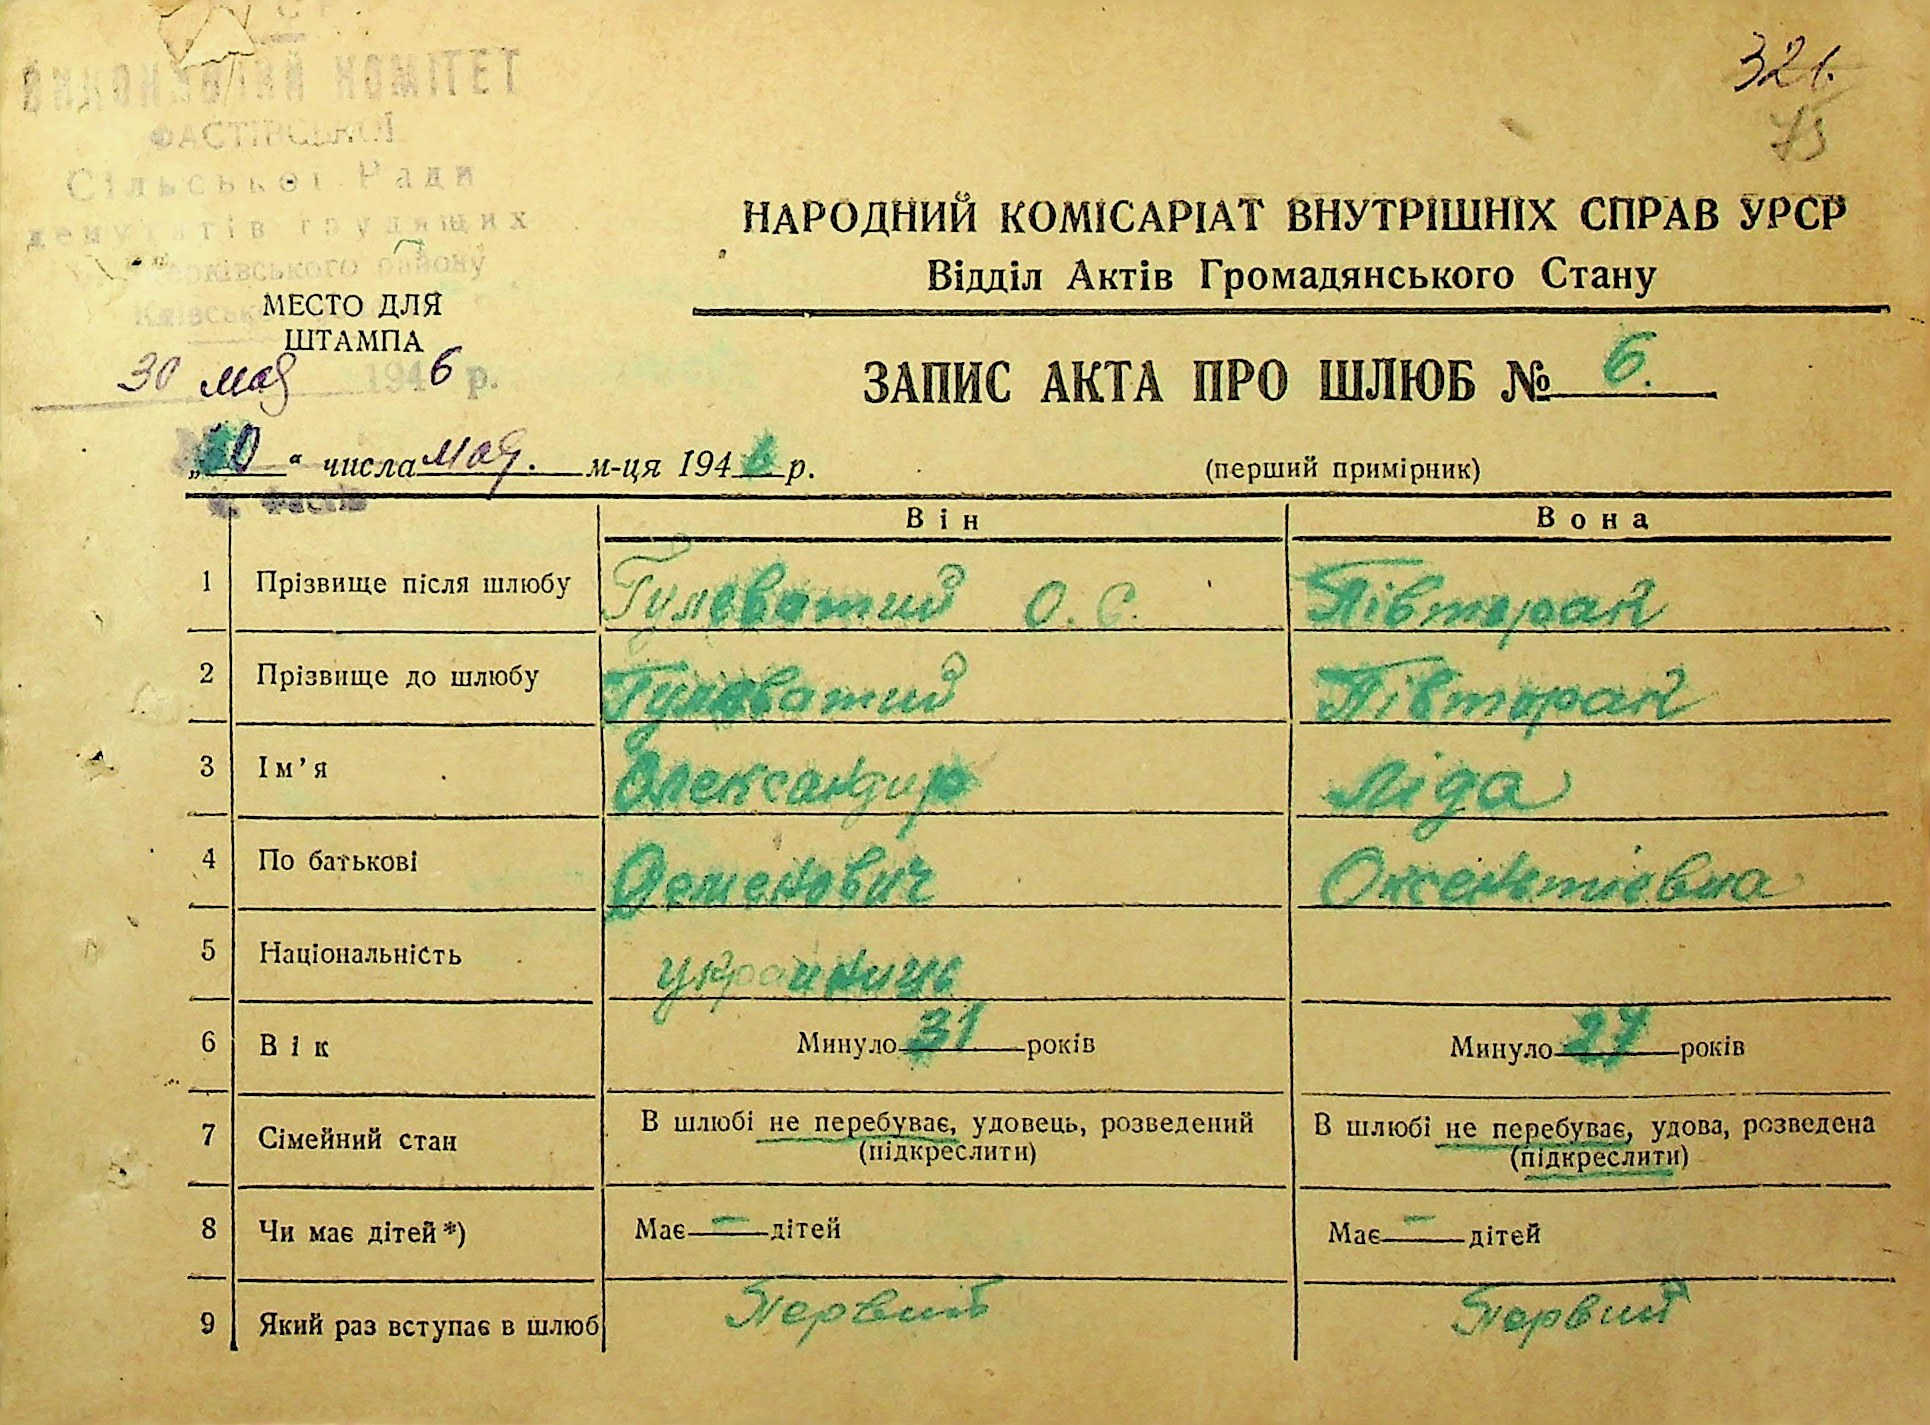 ВИКОНАВЧИЙ КОМІТЕТ
ФАСТІВСЬКОЇ
Сільської Ради
депутатів трудящих
району
МЕСТО ДЛЯ
ШТАМПА
30 мая 1946 р.
32 г.
75
НАРОДНИЙ КОМІСАРІАТ ВНУТРІШНІХ СПРАВ УРСР
Відділ Актів Громадянського Стану
ЗАПИС АКТА ПРО ШЛЮБ № 6.
„30“ числа мая. м-ця 1946 р.
(перший примірник)
с. Фастів
Він Вона
1 Прізвище після шлюбу Гулеватий О. С. Півторай
2 Прізвище до шлюбу Гулеватий Півторай
3 Ім’я Олександр Ліда
4 По батькові Семенович Оксентієвна
5 Національність українець
6 Вік Минуло 31 років Минуло 27 років
7 Сімейний стан В шлюбі не перебуває, удовець, розведений (підкреслити) В шлюбі не перебуває, удова, розведена (підкреслити)
8 Чи має дітей*) Має — дітей Має — дітей
9 Який раз вступає в шлюб Первий Первий